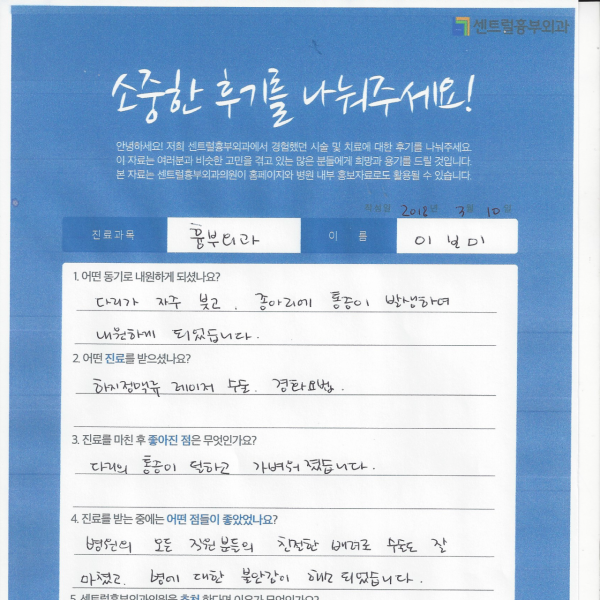 센트럴흉부외과
소중한 후기를 나눠주세요!
안녕하세요! 저희 센트럴흉부외과에서 경험했던 시술 및 치료에 대한 후기를 나눠주세요.
이 자료는 여러분과 비슷한 고민을 겪고 있는 많은 분들에게 희망과 용기를 드릴 것입니다.
본 자료는 센트럴흉부외과의원이 홈페이지와 병원 내부 홍보자료로도 활용될 수 있습니다.
작성일 2018년 3월 10일
진료과목 흉부외과 이 름 이보미
1. 어떤 동기로 내원하게 되셨나요?
다리가 자주 붓고, 종아리에 통증이 발생하여
내원하게 되었습니다.
2. 어떤 진료를 받으셨나요?
하지정맥류 레이저 수술. 경화요법.
3. 진료를 마친 후 좋아진 점은 무엇인가요?
다리의 통증이 덜하고 가벼워졌습니다.
4. 진료를 받는 중에는 어떤 점들이 좋았었나요?
병원의 모든 직원분들의 친절한 배려로 수술도 잘
마쳤고. 병에 대한 불안감이 해소되었습니다.
5. 센트럴흉부외과의원을 추천 한다면 이유가 무엇인가요?